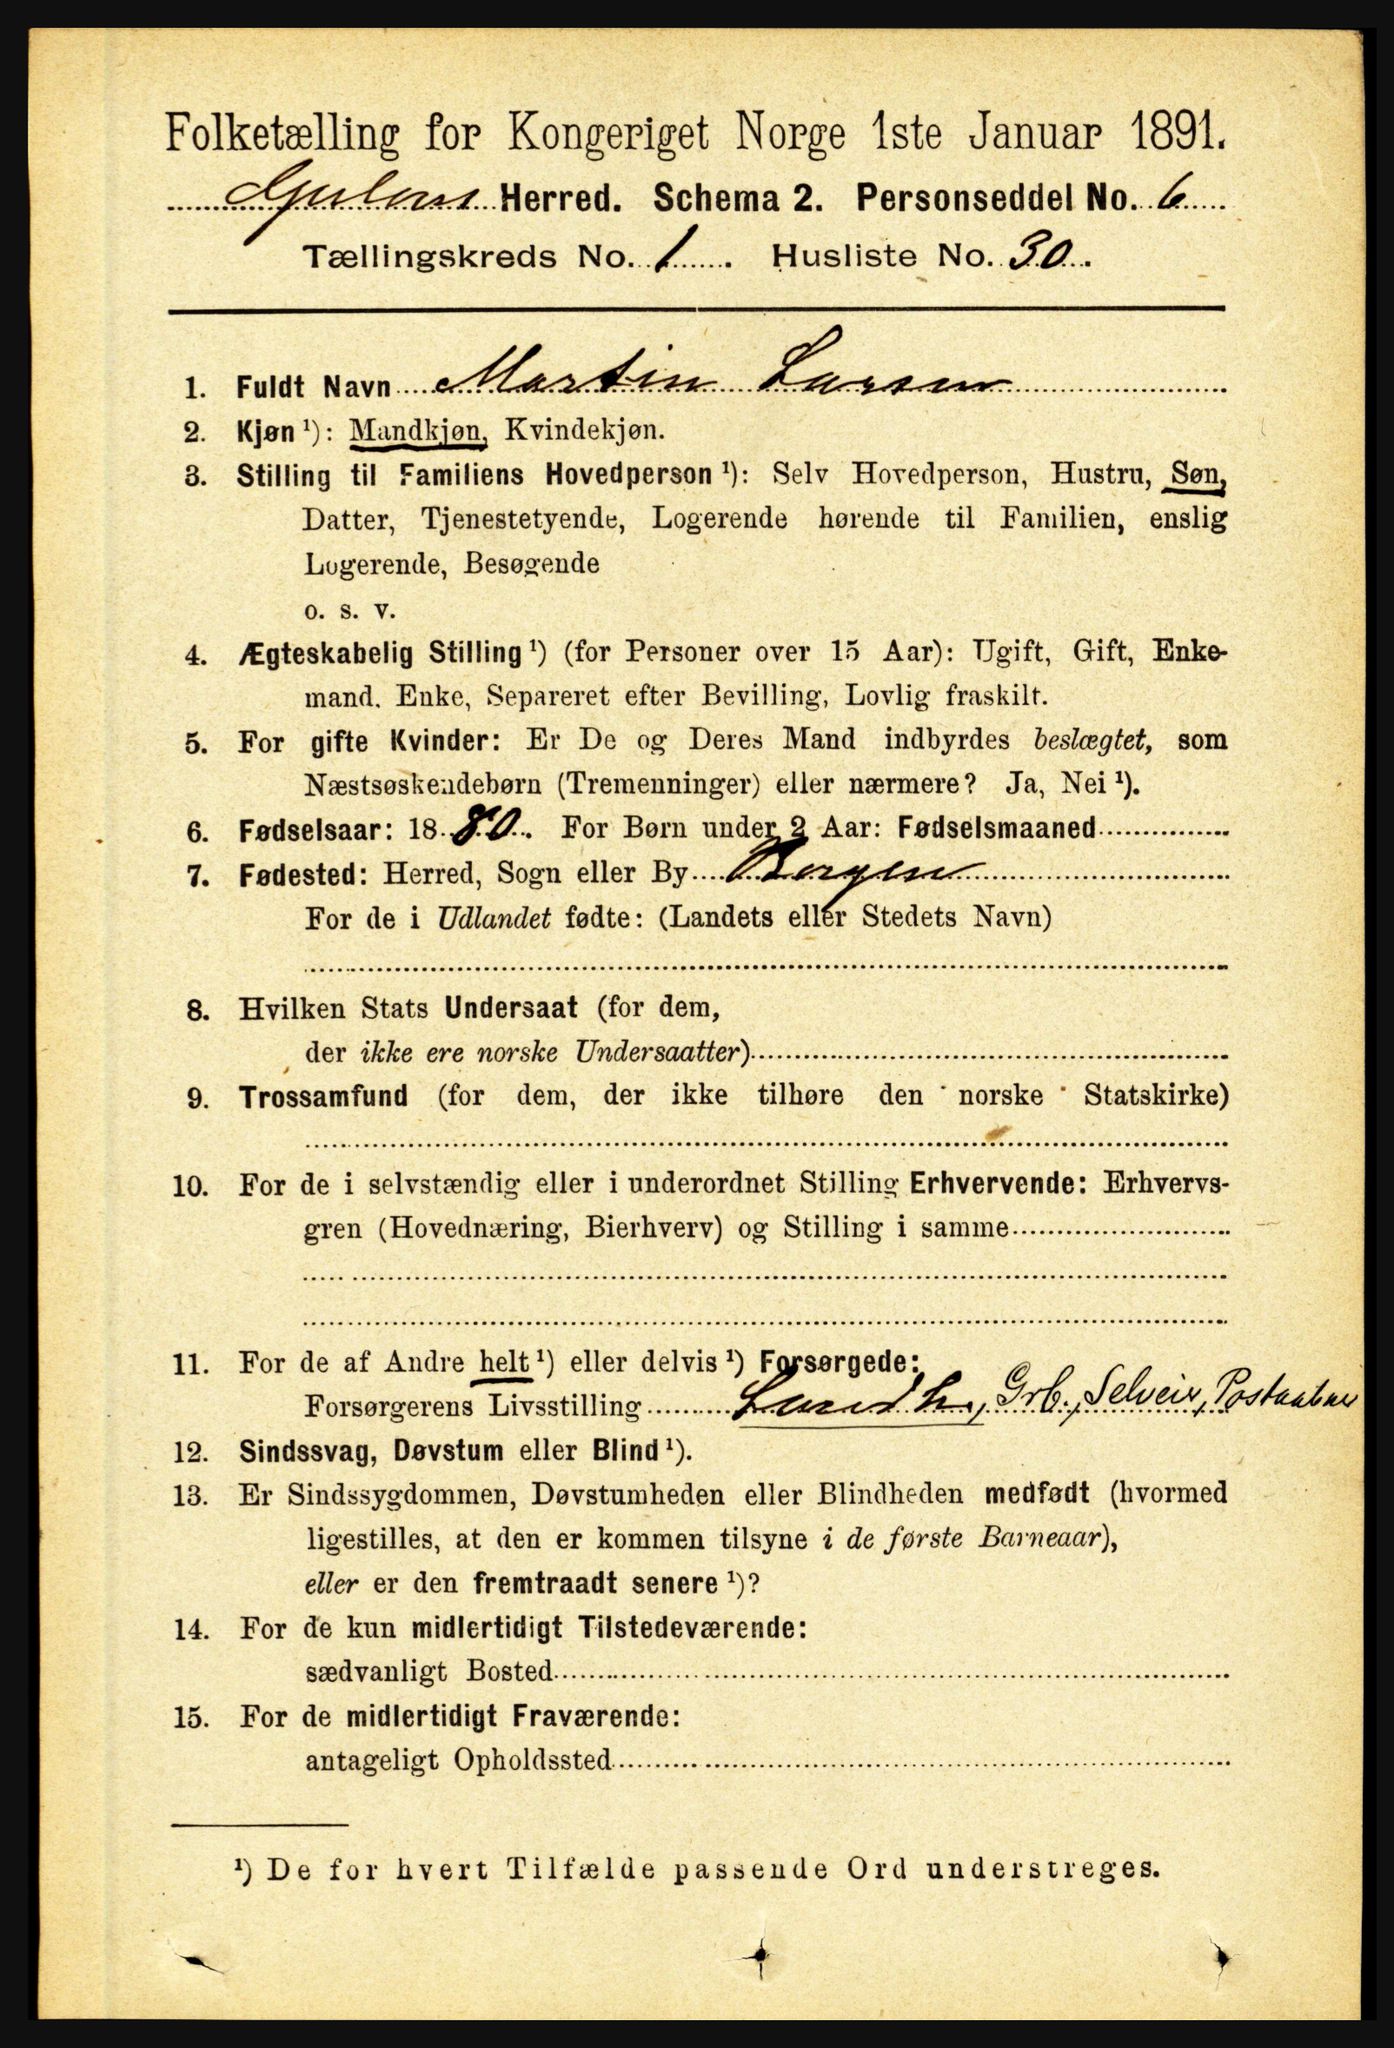 Folketælling for Kongeriget Norge 1ste Januar 1891.
Gulens Herred. Schema 2. Personseddel No. 6
Tællingskreds No. 1. Husliste No. 30.
1. Fuldt Navn Martin Larsen
2. Kjøn ¹): Mandkjøn, Kvindekjøn.
3. Stilling til Familiens Hovedperson ¹): Selv Hovedperson, Hustru, Søn,
Datter, Tjenestetyende, Logerende hørende til Familien, enslig
Logerende, Besøgende
o. s. v.
4. Ægteskabelig Stilling ¹) (for Personer over 15 Aar): Ugift, Gift, Enke-
mand, Enke, Separeret efter Bevilling, Lovlig fraskilt.
5. For gifte Kvinder: Er De og Deres Mand indbyrdes beslægtet, som
Næstsøskendebørn (Tremenninger) eller nærmere? Ja, Nei ¹).
6. Fødselsaar: 1880. For Børn under 2 Aar: Fødselsmaaned
7. Fødested: Herred, Sogn eller By Bergen
For de i Udlandet fødte: (Landets eller Stedets Navn)
8. Hvilken Stats Undersaat (for dem,
der ikke ere norske Undersaatter)
9. Trossamfund (for dem, der ikke tilhøre den norske Statskirke)
10. For de i selvstændig eller i underordnet Stilling Erhvervende: Erhvervs-
gren (Hovednæring, Bierhverv) og Stilling i samme
11. For de af Andre helt ¹) eller delvis ¹) Forsørgede:
Forsørgerens Livsstilling Landh., Grb., Selveier, Postaabner
12. Sindssvag, Døvstum eller Blind ¹).
13. Er Sindssygdommen, Døvstumheden eller Blindheden medfødt (hvormed
ligestilles, at den er kommen tilsyne i de første Barneaar),
eller er den fremtraadt senere ¹)?
14. For de kun midlertidigt Tilstedeværende:
sædvanligt Bosted
15. For de midlertidigt Fraværende:
antageligt Opholdssted
¹) De for hvert Tilfælde passende Ord understreges.